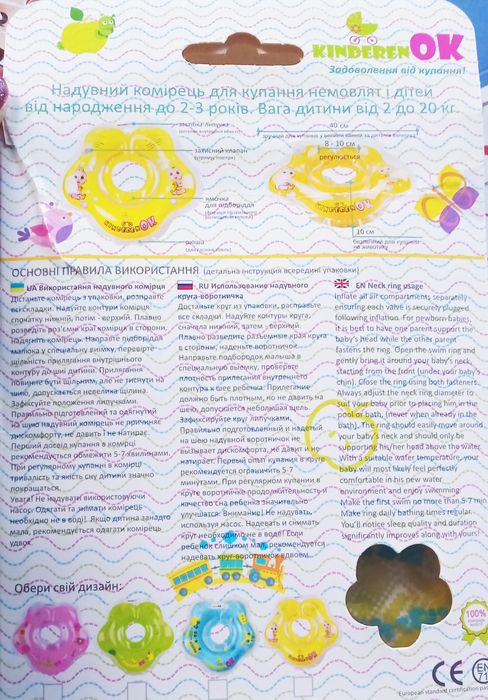 KINDERENOK
Задоволення від купання!
Надувний комірець для купання немовлят і дітей
від народження до 2-3 років. Вага дитини від 2 до 20 кг.
застібка "липучка"
захисний клапан
ямочка
для підборіддя
ОК
40 см
8 - 10 см
регулюється
10 см
ОСНОВНІ ПРАВИЛА ВИКОРИСТАННЯ (детальна інструкція всередині упаковки)
UA Використання надувного комірця
Дістаньте комірець з упаковки, розправте
всі складки. Надуйте контури комірця:
спочатку нижній, потім - верхній. Плавно
розведіть роз'ємні краї комірця в сторони,
надягніть комірець. Направте підборіддя
малюка у спеціальну виїмку, перевірте
щільність прилягання внутрішнього
контуру до шиї дитини. Прилягання
повинне бути щільним, але не тиснути на
шию, допускається невелика щілина.
Зафіксуйте положення липучками.
Правильно підготовлений та одягнутий
на шию надувний комірець не причиняє
дискомфорту, не давить і не натирає.
Перший досвід купання в комірці
рекомендується обмежити 5-7 хвилинами.
При регулярному купанні в комірці
тривалість та якість сну дитини значно
покращується.
Увага! Не надувати використовуючи
насос. Одягати та знімати комірець
необхідно не в воді! Якщо дитина занадто
мала, рекомендується одягати комірець
удвох.
RU Использование надувного
круга-воротничка
Достаньте круг из упаковки, расправьте
все складки. Надуйте контуры круга:
сначала нижний, затем - верхний.
Плавно разведите разъемные края круга
в стороны, наденьте воротничок.
Направьте подбородок малыша в
специальную выемку, проверьте
плотность прилегания внутреннего
контура к шее ребенка. Прилегание
должно быть плотным, но не давить на
шею, допускается небольшая щель.
Зафиксируйте круг липучками.
Правильно подготовленный и надетый
на шею надувной воротничок не
вызывает дискомфорта, не давит и не
натирает. Первый опыт купания в круге
рекомендуется ограничить 5-7
минутами. При регулярном купании в
круге воротничке продолжительность и
качество сна ребенка значительно
улучшается. Внимание! Не надувать,
используя насос. Надевать и снимать
круг необходимо не в воде! Если
ребенок слишком мал, рекомендуется
надевать круг-воротничок вдвоем.
EN Neck ring usage
Inflate all air compartments separately
ensuring each valve is securely plugged
following inflation. For newborn babies,
it is best to have one parent support the
baby's head while the other parent
fastens the ring. Open the swim ring and
gently bring it around your baby's neck,
starting from the front (under your baby's
chin). Close the ring using both fasteners.
Always adjust the neck ring diameter to
suit your baby prior to placing him in the
pool or bath, (never when already in the
bath). The ring should easily move around
your baby's neck and should only be
supporting his/her head above the water.
With suitable water temperature, your
baby will most likely feel perfectly
comfortable in his new water
environment and enjoy swimming.
Make the first swim no more than 5-7 min
Make ring daily bathing times regular.
You'll notice sleep quality and duration
significantly improves along with yours!
Обери свій дизайн:
100%
CE
EN
71
European standard certification pas